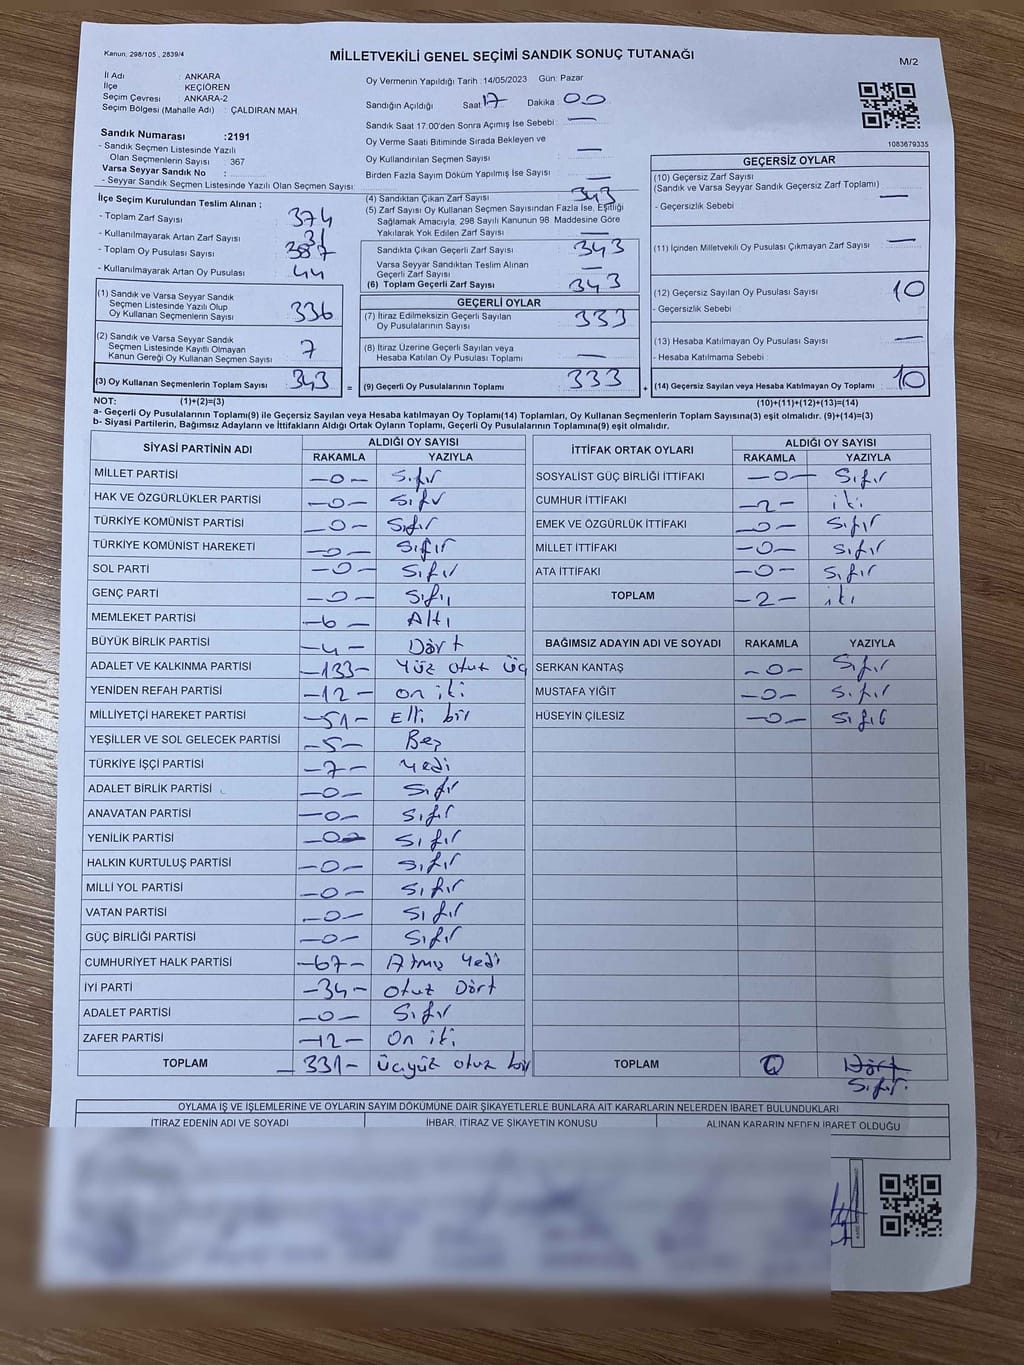 Kanun, 298/105 , 2839/4
MİLLETVEKİLİ GENEL SEÇİMİ SANDIK SONUÇ TUTANAĞI
M/2
İl Adı : ANKARA
İlçe : KEÇİÖREN
Seçim Çevresi : ANKARA-2
Seçim Bölgesi (Mahalle Adı) : ÇALDIRAN MAH
Oy Vermenin Yapıldığı Tarih : 14/05/2023 Gün: Pazar
Sandığın Açıldığı Saat 17 Dakika : 00
Sandık Saat 17:00'den Sonra Açımış İse Sebebi : —
Oy Verme Saati Bitiminde Sırada Bekleyen ve
Oy Kullandırılan Seçmen Sayısı : —
Birden Fazla Sayım Döküm Yapılmış İse Sayısı : —
1083679335
Sandık Numarası :2191
- Sandık Seçmen Listesinde Yazılı
Olan Seçmenlerin Sayısı : 367
Varsa Seyyar Sandık No :
- Seyyar Sandık Seçmen Listesinde Yazılı Olan Seçmen Sayısı:
İlçe Seçim Kurulundan Teslim Alınan ;
- Toplam Zarf Sayısı : 374
- Kullanılmayarak Artan Zarf Sayısı : 31
- Toplam Oy Pusulası Sayısı : 387
- Kullanılmayarak Artan Oy Pusulası : 44
(1) Sandık ve Varsa Seyyar Sandık
Seçmen Listesinde Yazılı Olup
Oy Kullanan Seçmenlerin Sayısı : 336
(2) Sandık ve Varsa Seyyar Sandık
Seçmen Listesinde Kayıtlı Olmayan
Kanun Gereği Oy Kullanan Seçmen Sayısı : 7
(3) Oy Kullanan Seçmenlerin Toplam Sayısı : 343 =
(4) Sandıktan Çıkan Zarf Sayısı : 343
(5) Zarf Sayısı Oy Kullanan Seçmen Sayısından Fazla İse, Eşitliği
Sağlamak Amacıyla, 298 Sayılı Kanunun 98. Maddesine Göre
Yakılarak Yok Edilen Zarf Sayısı : —
Sandıkta Çıkan Geçerli Zarf Sayısı : 343
Varsa Seyyar Sandıktan Teslim Alınan
Geçerli Zarf Sayısı : —
(6) Toplam Geçerli Zarf Sayısı : 343
GEÇERLİ OYLAR
(7) İtiraz Edilmeksizin Geçerli Sayılan
Oy Pusulalarının Sayısı : 333
(8) İtiraz Üzerine Geçerli Sayılan veya
Hesaba Katılan Oy Pusulası Toplamı : —
(9) Geçerli Oy Pusulalarının Toplamı : 333 +
GEÇERSİZ OYLAR
(10) Geçersiz Zarf Sayısı
(Sandık ve Varsa Seyyar Sandık Geçersiz Zarf Toplamı) : —
- Geçersizlik Sebebi :
(11) İçinden Milletvekili Oy Pusulası Çıkmayan Zarf Sayısı : —
(12) Geçersiz Sayılan Oy Pusulası Sayısı : 10
- Geçersizlik Sebebi :
(13) Hesaba Katılmayan Oy Pusulası Sayısı : —
- Hesaba Katılmama Sebebi :
(14) Geçersiz Sayılan veya Hesaba Katılmayan Oy Pusulası Toplamı : 10
NOT: (1)+(2)=(3) (10)+(11)+(12)+(13)=(14)
a- Geçerli Oy Pusulalarının Toplamı(9) ile Geçersiz Sayılan veya Hesaba katılmayan Oy Toplamı(14) Toplamları, Oy Kullanan Seçmenlerin Toplam Sayısına(3) eşit olmalıdır. (9)+(14)=(3)
b- Siyasi Partilerin, Bağımsız Adayların ve İttifakların Aldığı Ortak Oyların Toplamı, Geçerli Oy Pusulalarının Toplamına(9) eşit olmalıdır.
SİYASİ PARTİNİN ADI ALDIĞI OY SAYISI
RAKAMLA YAZIYLA
MİLLET PARTİSİ -0- Sıfır
HAK VE ÖZGÜRLÜKLER PARTİSİ -0- Sıfır
TÜRKİYE KOMÜNİST PARTİSİ -0- Sıfır
TÜRKİYE KOMÜNİST HAREKETİ -0- Sıfır
SOL PARTİ -0- Sıfır
GENÇ PARTİ -0- Sıfır
MEMLEKET PARTİSİ -6- Altı
BÜYÜK BİRLİK PARTİSİ -4- Dört
ADALET VE KALKINMA PARTİSİ -133- Yüz otuz üç
YENİDEN REFAH PARTİSİ -12- on iki
MİLLİYETÇİ HAREKET PARTİSİ -51- Elli bir
YEŞİLLER VE SOL GELECEK PARTİSİ -5- Beş
TÜRKİYE İŞÇİ PARTİSİ -7- Yedi
ADALET BİRLİK PARTİSİ -0- Sıfır
ANAVATAN PARTİSİ -0- Sıfır
YENİLİK PARTİSİ -0- Sıfır
HALKIN KURTULUŞ PARTİSİ -0- Sıfır
MİLLİ YOL PARTİSİ -0- Sıfır
VATAN PARTİSİ -0- Sıfır
GÜÇ BİRLİĞİ PARTİSİ -0- Sıfır
CUMHURİYET HALK PARTİSİ -67- Atmış Yedi
İYİ PARTİ -34- otuz Dört
ADALET PARTİSİ -0- Sıfır
ZAFER PARTİSİ -12- On iki
TOPLAM -331- üçyüz otuz bir
İTTİFAK ORTAK OYLARI ALDIĞI OY SAYISI
RAKAMLA YAZIYLA
SOSYALIST GÜÇ BİRLİĞİ İTTİFAKI -0- Sıfır
CUMHUR İTTİFAKI -2- iki
EMEK VE ÖZGÜRLÜK İTTİFAKI -0- Sıfır
MİLLET İTTİFAKI -0- Sıfır
ATA İTTİFAKI -0- Sıfır
TOPLAM -2- iki
BAĞIMSIZ ADAYIN ADI VE SOYADI RAKAMLA YAZIYLA
SERKAN KANTAŞ -0- Sıfır
MUSTAFA YİĞİT -0- Sıfır
HÜSEYİN ÇİLESİZ -0- Sıfır
TOPLAM 0 Dört
Sıfır
OYLAMA İŞ VE İŞLEMLERİNE VE OYLARIN SAYIM DÖKÜMÜNE DAİR ŞİKAYETLERLE BUNLARA AİT KARARLARIN NELERDEN İBARET BULUNDUKLARI
İTİRAZ EDENİN ADI VE SOYADI İHBAR, İTİRAZ VE ŞİKAYETİN KONUSU ALINAN KARARIN NEDEN İBARET OLDUĞU